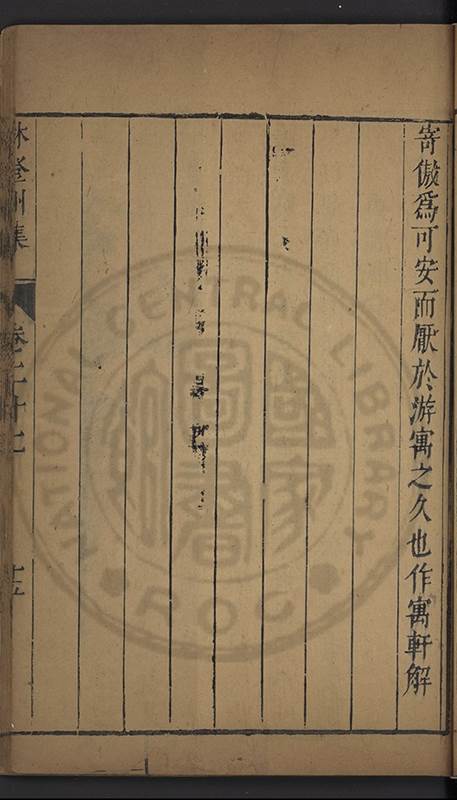 寄傲爲可安而厭於游寓之久也作寓軒解
林登州集
卷之二十
NATIONAL CENTRAL LIBRARY
ROC
國家圖書館